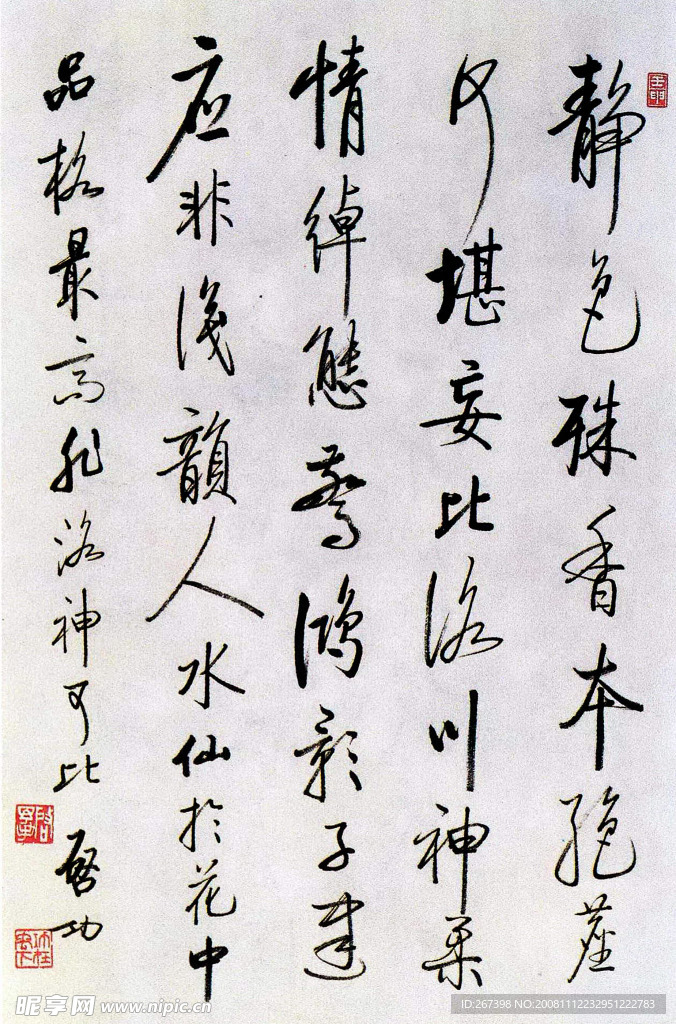 静色殊香本絕塵
何堪妄比洛川神柔
情綽態驚鴻影子建
应非淺韻人水仙於花中
品格最高非洛神可比
啓功
昵享网 www.nipic.cn
ID:267398 NO.20081112232951222783